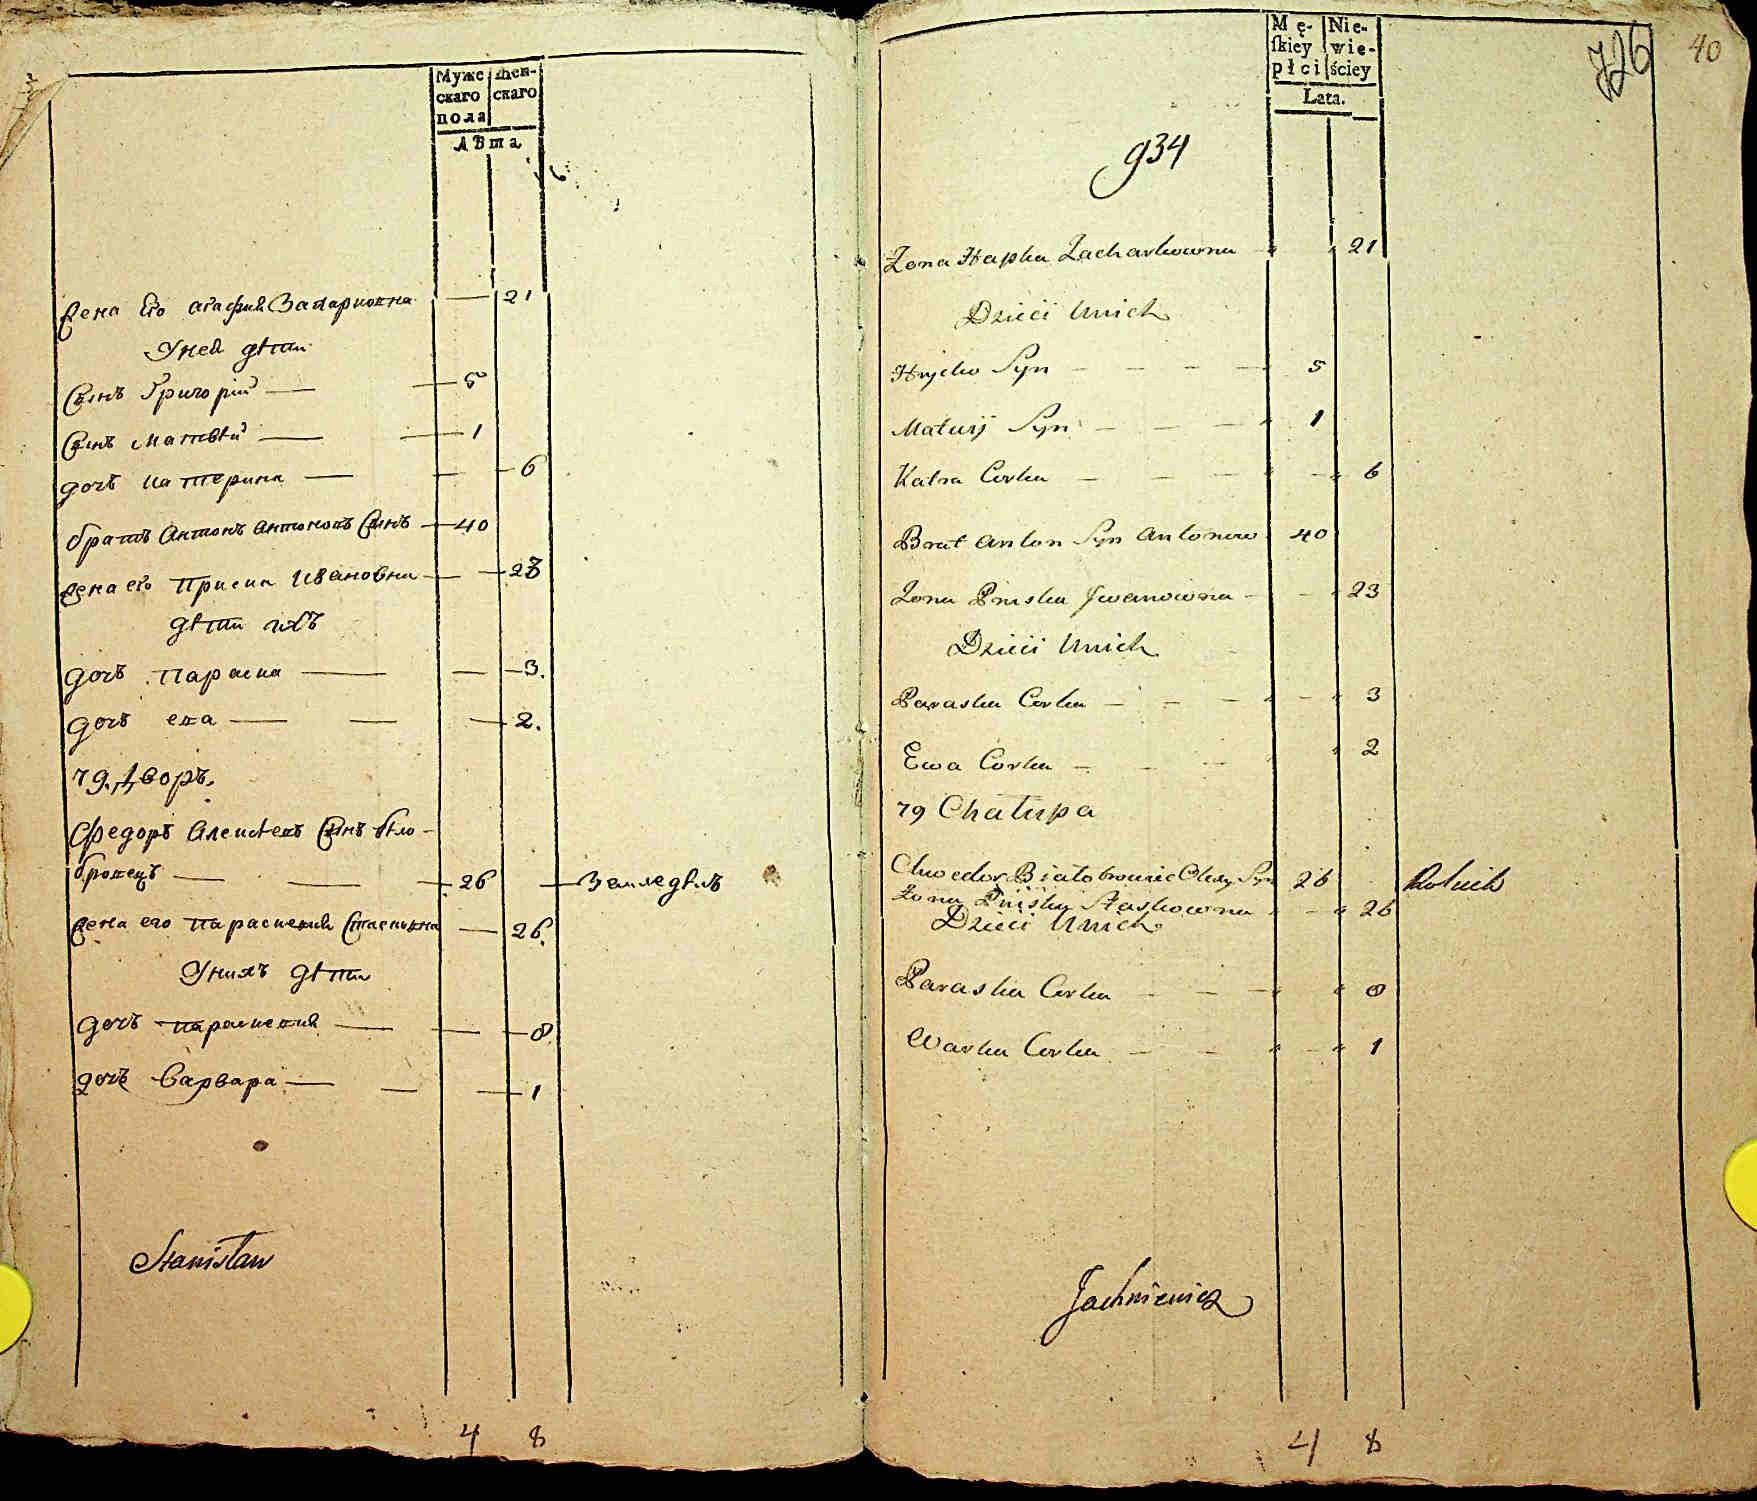 Муже
скаго
пола
Жен-
скаго
Лѣта
Жена Его агафия Захариовна — 21
Уней дѣти
Сынъ Григорій — 5
Сынъ Матвѣй — 1
дочь катерина — 6
братъ Антонъ Антоновъ Сынъ — 40
Жена его Приска Ивановна — 23
дѣти ихъ
дочь Параска — 3.
дочь ева — 2.
79. Дворъ.
Федоръ Алексѣевъ Сынъ бѣло-
бровецъ — 26 — Земледѣлъ
Жена его Параскевия — 26.
Унихъ дѣти
дочь параскевия — 8
дочь Варвара — 1
Stanisław
4 8
Mę-
ſkiey
płci
Nie-
wie-
ściey
Lata.
726
40
934
Żona Hapka Zacharkowna 21
Dzieci Unich
Hryćko Syn 5
Matwij Syn 1
Katra Corka 6
Brat Anton Syn Antonow 40
Zona Pruska Jwanowna 23
Dzieci Unich
Paraska Corka 3
Ewa Corka 2
79 Chałupa
Chwedor Białobrowiec Olexy Syn 26 Rolnik
Żona Staskowna 26
Dzieci Unich
Paraska Corka 8
Warka Corka 1
Jachniewicz
4 8